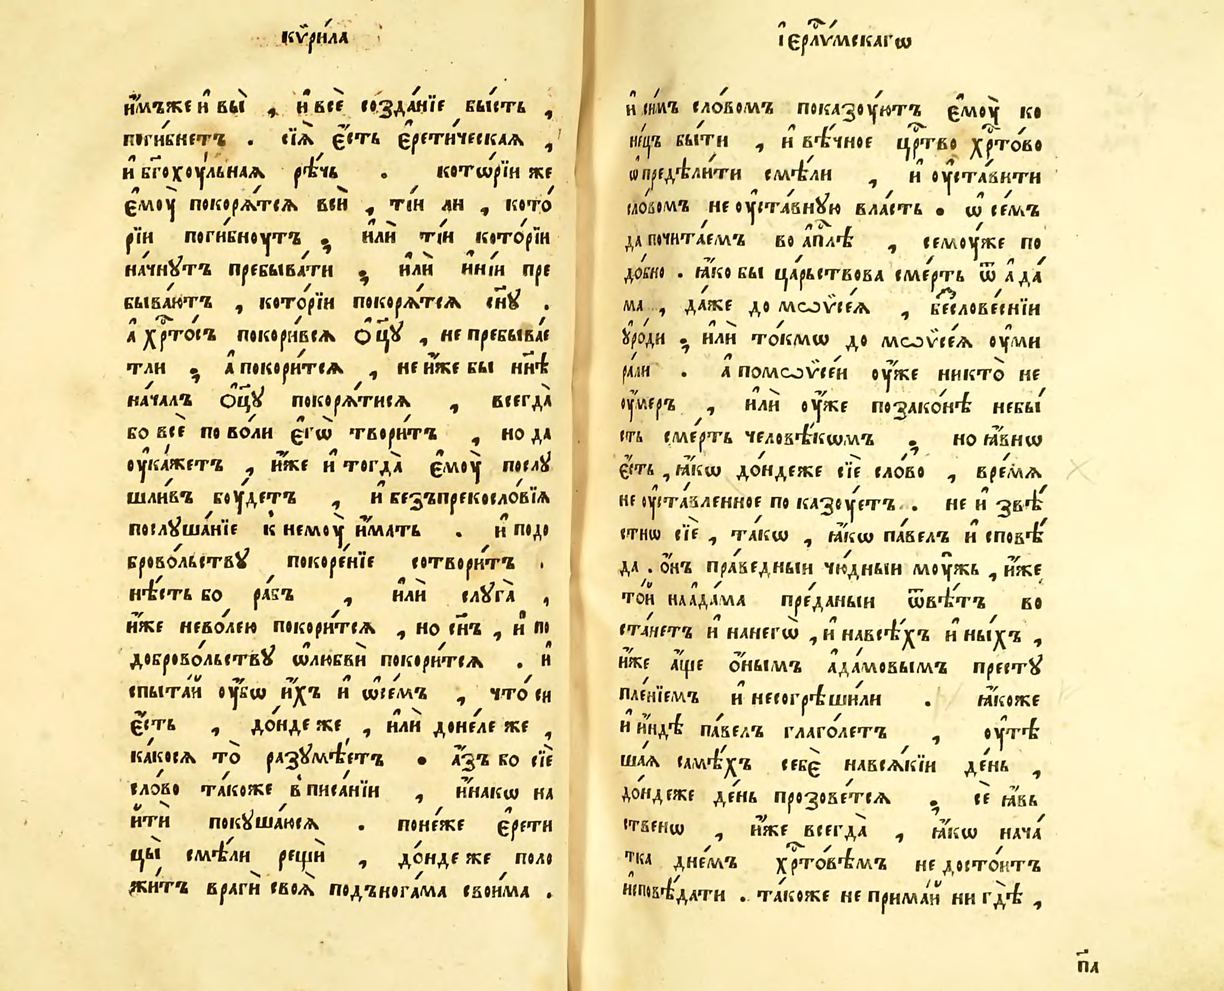 кѷри́ла
и҆́мъже и҆ вы̀ , и҆ всѐ созда́нїе бы́сть ,
поги́бнетъ . сїѧ̀ є҆́сть є҆рети́ческаѧ ,
и҆ бг҃охоу́льнаѧ рѣ́чь . кото́рїи же
є҆моу̀ покорѧ́тсѧ всѝ , ті́и ли , кото́
рїи поги́бноутъ ; и҆лѝ ті́и кото́рїи
начну́тъ пребыва́ти ; и҆лѝ и҆ні́и пре
быва́ютъ , кото́рїи покорѧ́тсѧ сн҃у .
а҆ хрⷭ҇то́съ покори́всѧ ѻ҆ц҃у , не пребыва́е
тли ; а҆ покори́тсѧ , не и҆́же бы нн҃ѣ
нача́лъ ѻ҆ц҃у покорѧ́тисѧ , всегда̀
бо всѐ по во́ли є҆гѡ̀ твори́тъ , но да
оу҆ка́жетъ , и҆́же и҆ тогда̀ є҆моу̀ послу
шли́въ боу́детъ , и҆ безъпрекосло́вїѧ
послуша́нїе к̾ немоу̀ и҆́мать . и҆ подо
брово́льству покоре́нїе сотвори́тъ .
нѣ́сть бо ра́бъ , и҆лѝ слуга̀ ,
и҆́же нево́лею покори́тсѧ , но сн҃ъ , и҆ по
доброво́льству ѡ҆любвѝ покори́тсѧ . и҆
спыта́й оу҆́бѡ и҆́хъ и҆ ѡ҆се́мъ , что́ си
є҆́сть , до́нде же , и҆лѝ доне́ле же ,
ка́косѧ то̀ разумѣ́етъ . а҆́зъ бо сїѐ
сло́во та́коже в̾ писа́нїи , и҆́накѡ на
и҆тѝ покуша́юсѧ . поне́же є҆рети
цы̀ смѣ́ли рещѝ , до́нде же поло
жи́тъ врагѝ своѧ̀ подънога́ма свои́ма .
і҆ерⷭ҇лѵ́мскагѡ
и҆ си́мъ сло́вомъ показоу́ютъ є҆моу̀ ко
не́цъ бы́ти , и҆ вѣ́чное црⷭ҇тво хрⷭ҇то́во
ѡ҆предѣли́ти смѣ́ли , и҆ оу҆ста́вити
сло́вомъ не оу҆ста́вную вла́сть . ѡ҆ се́мъ
да почита́емъ во а҆пⷭ҇лѣ , семоу́же по
до́бно . ꙗ҆́ко бы ца́рьствова сме́рть ѿ а҆да́
ма , да́же до мѡѵ̈се́ѧ , бе́словеснїи
оу҆ро́ди ; и҆лѝ то́кмѡ до мѡѵ̈се́ѧ оу҆ми
ра́ли . а҆ помѡѵ̈се́и оу҆́же никто̀ не
оу҆́меръ , и҆лѝ оу҆́же позако́нѣ небы́
сть сме́рть человѣ́кѡмъ ; но ꙗ҆́внѡ
є҆́сть , ꙗ҆́кѡ до́ндеже сїѐ сло́во , вре́мѧ
не оу҆ста́вленное по казоу́етъ . не и҆ звѣ́
стнѡ сїѐ , та́кѡ , ꙗ҆́кѡ па́велъ и҆ сповѣ́
да . ѻ҆́нъ пра́ведныи чю́дныи моу́жь , и҆́же
то́й на а҆да́ма пре́даныи ѿвѣ́тъ во
ста́нетъ и҆ нанегѡ̀ , и҆ навсѣ́хъ и҆ ны́хъ ,
и҆́же а҆́ще ѻ҆́нымъ а҆да́мовымъ престу
пле́нїемъ и҆ несогрѣши́ли . ꙗ҆́коже
и҆ и҆́ндѣ па́велъ глаго́летъ , оу҆тѣ
ша́ѧ самѣ́хъ себѐ навсѧ́кїи де́нь ,
до́ндеже де́нь прозове́тсѧ ; сѐ ꙗ҆́въ
ственѡ , и҆́же всегда̀ , ꙗ҆́кѡ нача́
тка дне́мъ хрⷭ҇то́вѣмъ не досто́итъ
и҆сповѣ́дати . та́коже не примай ни гдѣ̀ ,
п҃а